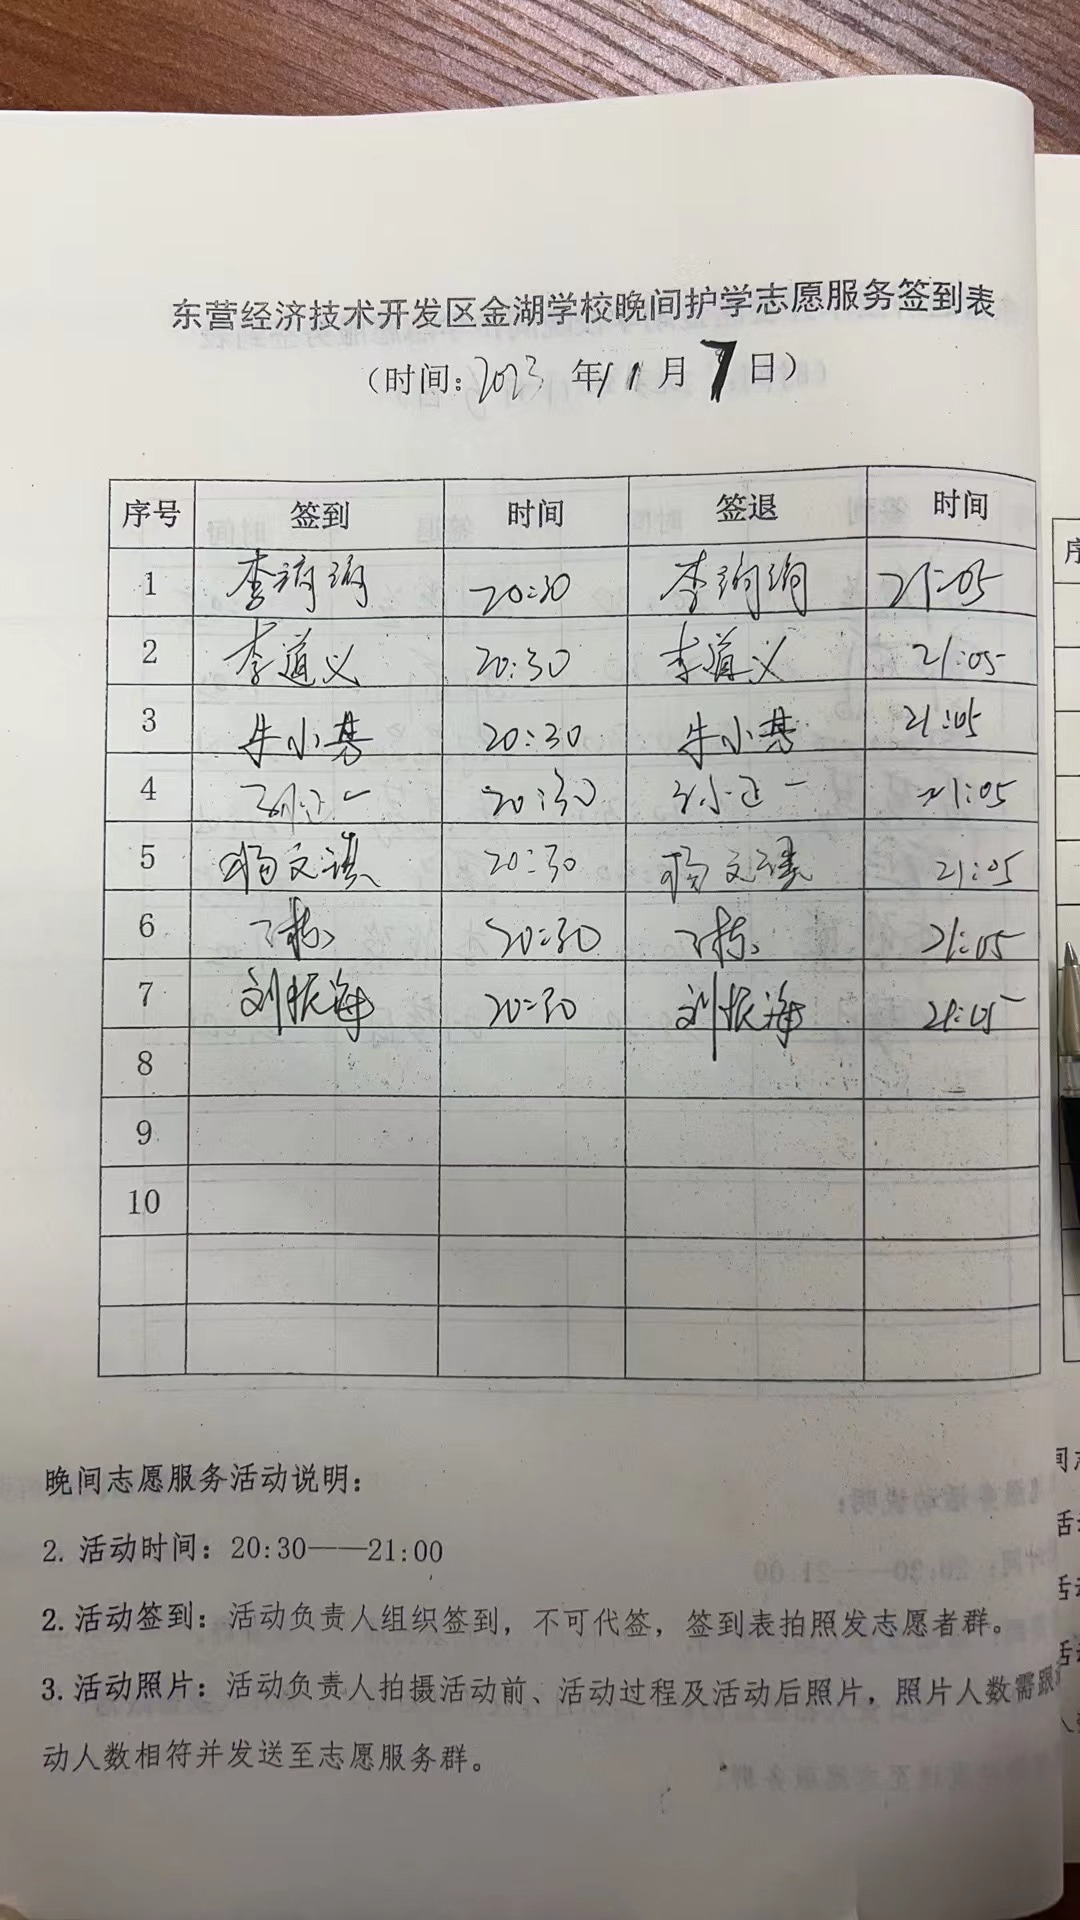 东营经济技术开发区金湖学校晚间护学志愿服务签到表
（时间：2023 年 11 月 7 日）
序号 签到 时间 签退 时间
1 李 20:30 李 21:05
2 李道义 20:30 李道义 21:05
3 朱小 20:30 朱小 21:05
4 孙正一 20:30 孙正一 21:05
5 杨文 20:30 杨文 21:05
6 20:30 21:05
7 刘振海 20:30 刘振海 21:05
8
9
10
晚间志愿服务活动说明：
2. 活动时间：20:30——21:00
2. 活动签到：活动负责人组织签到，不可代签，签到表拍照发志愿者群。
3. 活动照片：活动负责人拍摄活动前、活动过程及活动后照片，照片人数需跟
动人数相符并发送至志愿服务群。